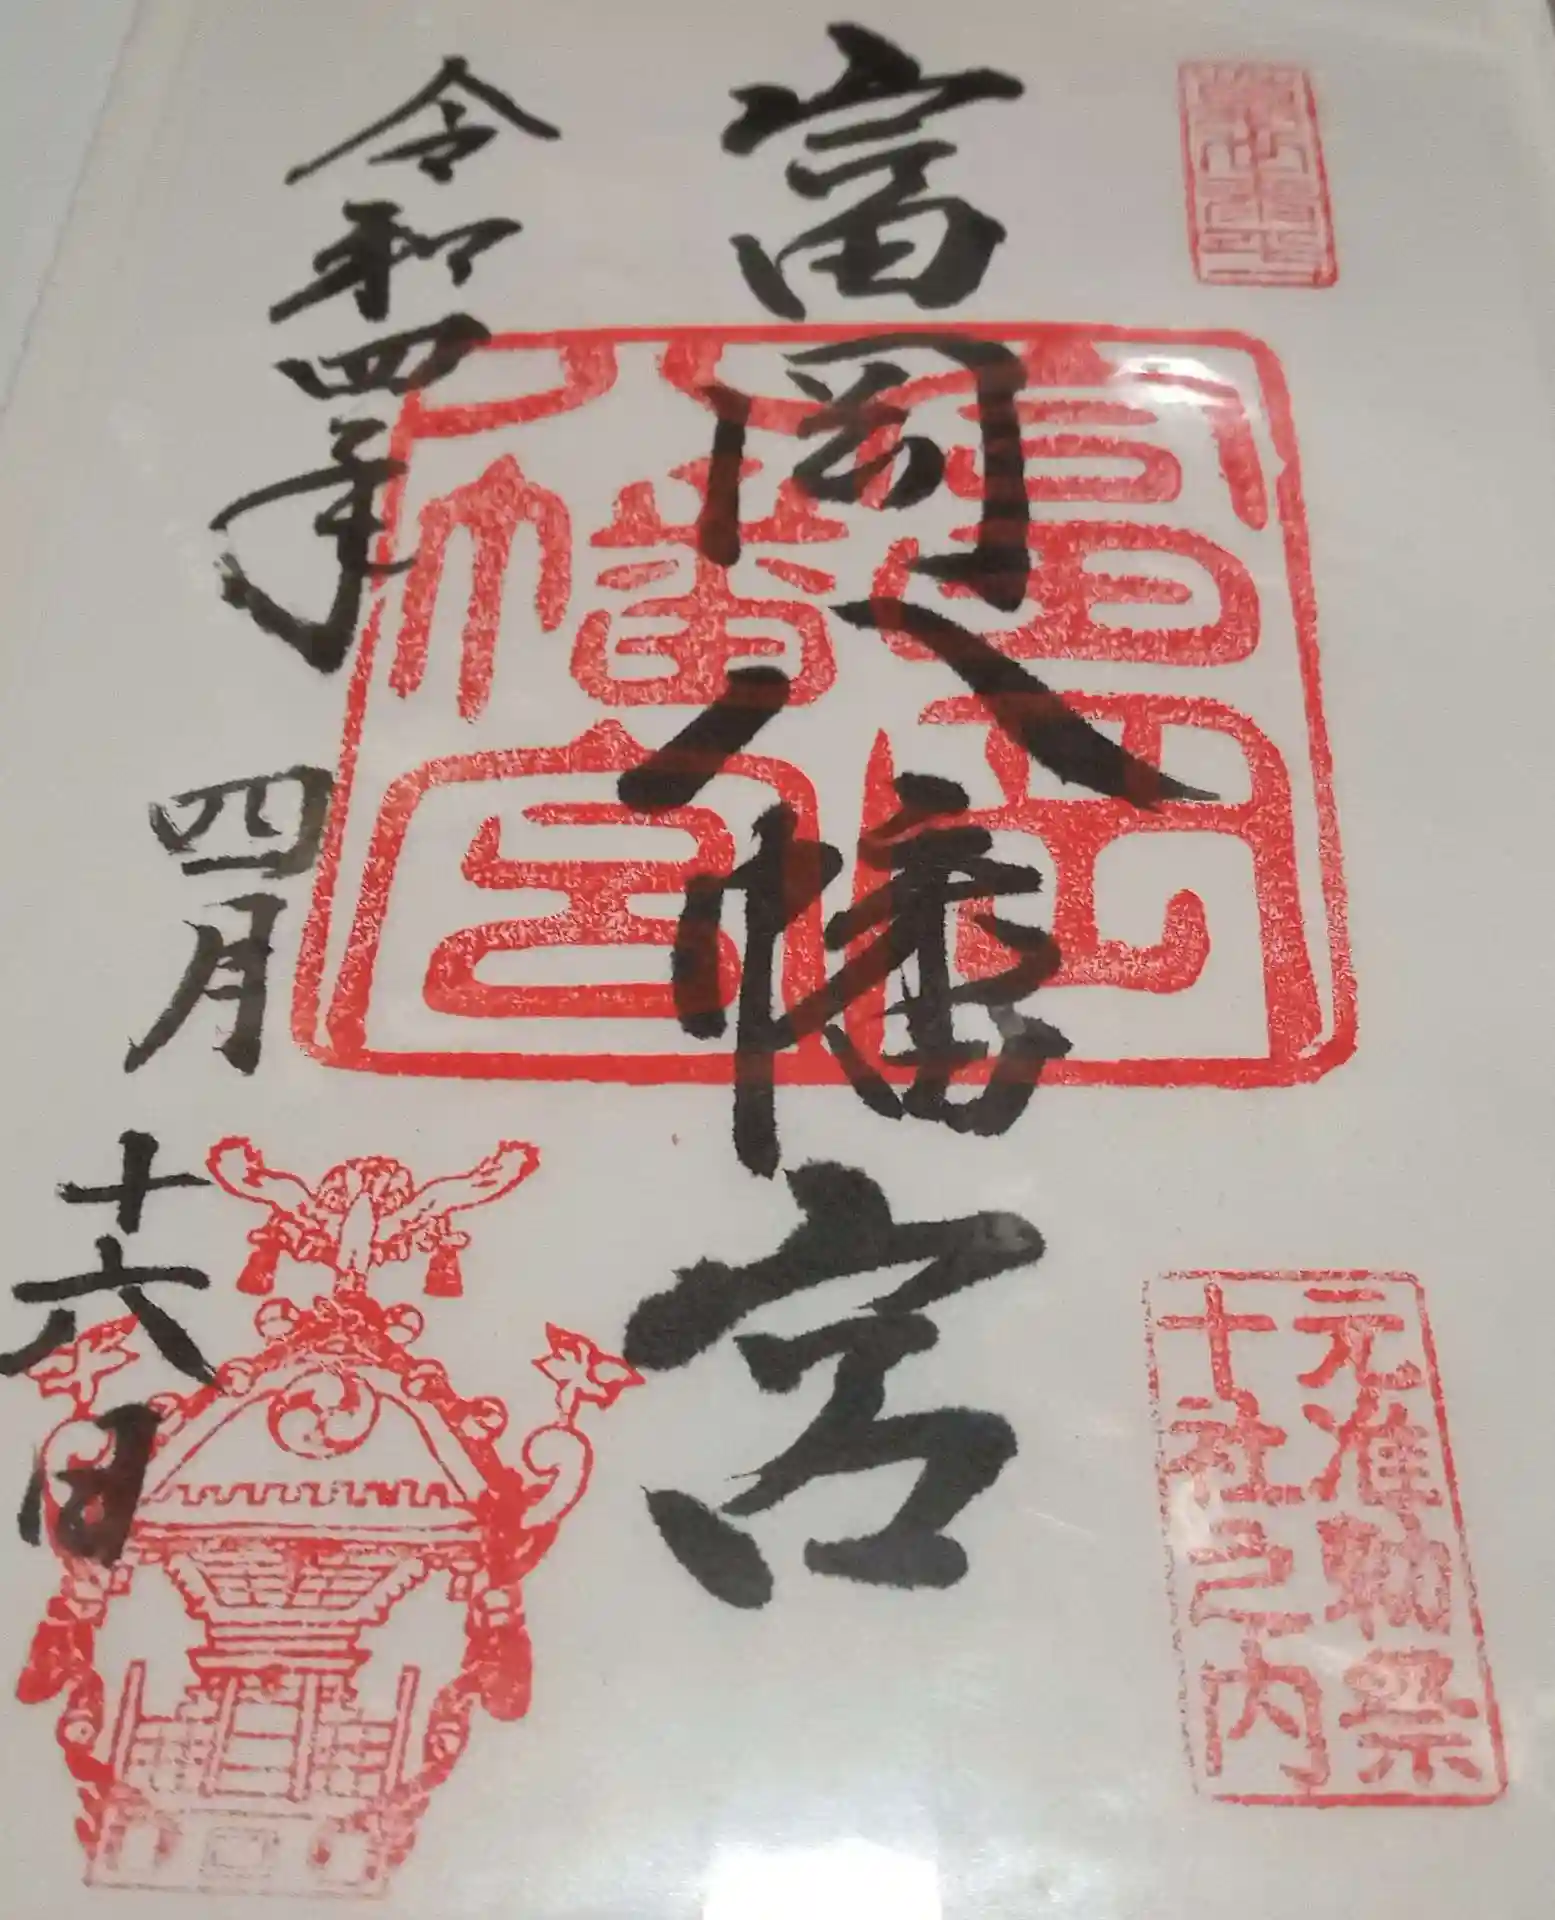 富岡八幡宮
富岡
八幡宮
元准勅祭
十社之内
令和四年 四月 十六日